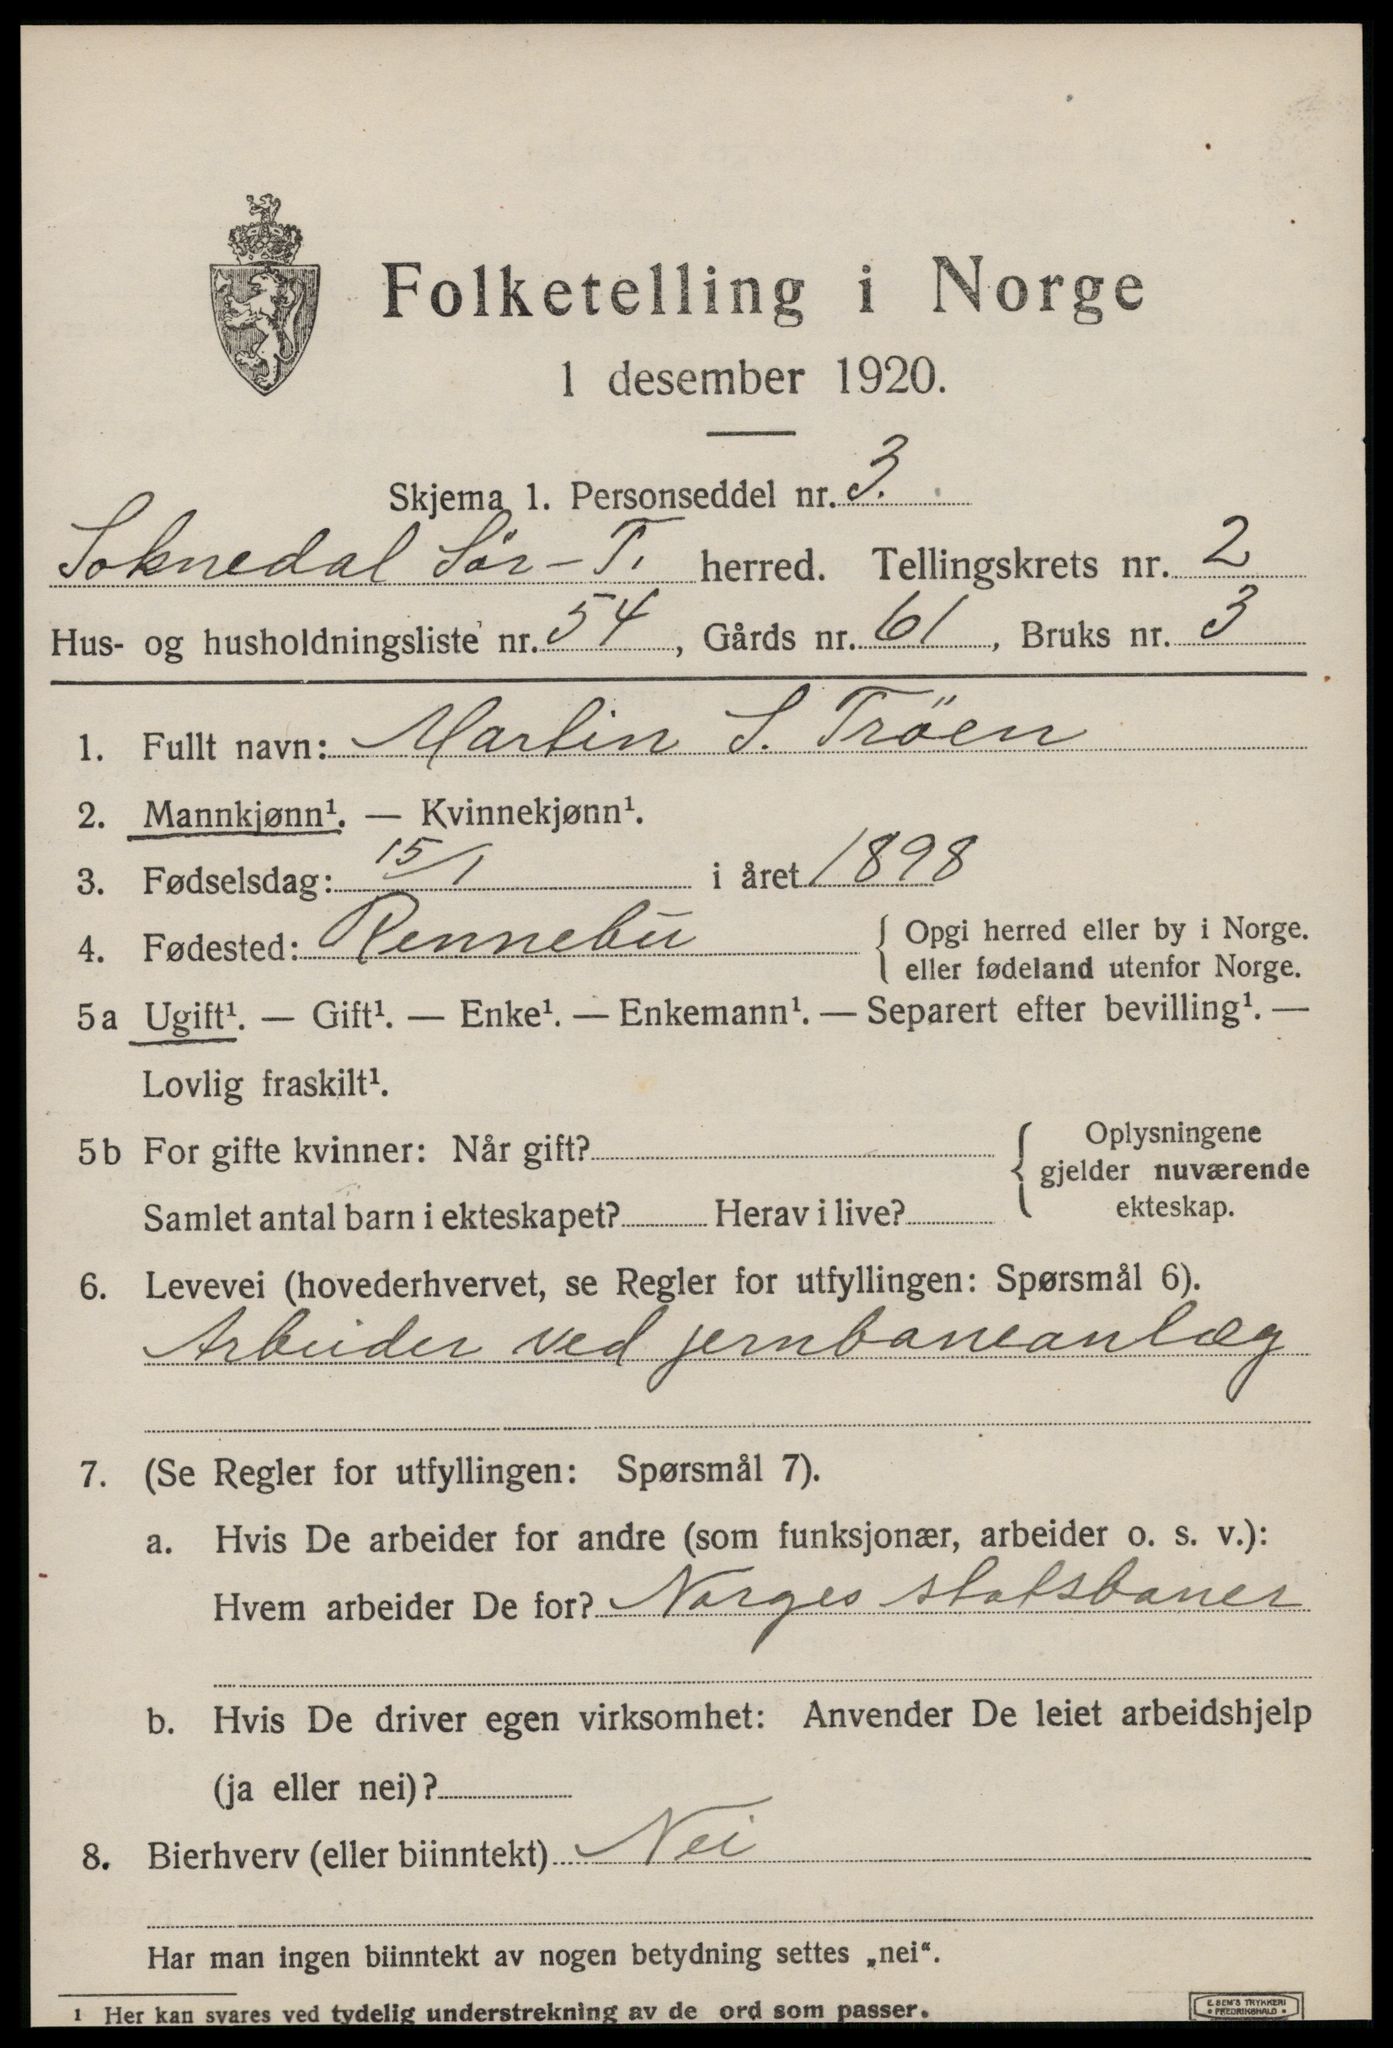 Folketelling i Norge
1 desember 1920.
Skjema 1. Personseddel nr. 3.
Soknedal Sør-T. herred. Tellingskrets nr. 2
Hus- og husholdningsliste nr. 54, Gårds nr. 61, Bruks nr. 3
1. Fullt navn: Martin S. Tröen
2. Mannkjønn¹. — Kvinnekjønn¹.
3. Fødselsdag: 15/1 i året 1898
4. Fødested: Rennebu { Opgi herred eller by i Norge.
eller fødeland utenfor Norge.
5a Ugift¹. — Gift¹. — Enke¹. — Enkemann¹. — Separert efter bevilling¹. —
Lovlig fraskilt¹.
5b For gifte kvinner: Når gift? { Oplysningene
gjelder nuværende
Samlet antal barn i ekteskapet? Herav i live? ekteskap.
6. Levevei (hovederhvervet, se Regler for utfyllingen: Spørsmål 6).
Arbeider ved jernbaneanlæg
7. (Se Regler for utfyllingen: Spørsmål 7).
a. Hvis De arbeider for andre (som funksjonær, arbeider o. s. v.):
Hvem arbeider De for? Norges statsbaner
b. Hvis De driver egen virksomhet: Anvender De leiet arbeidshjelp
(ja eller nei)?
8. Bierhverv (eller biinntekt) Nei
Har man ingen biinntekt av nogen betydning settes „nei“.
1 Her kan svares ved tydelig understrekning av de ord som passer.
E. SEM'S TRYKKERI
• FREDRIKSHALD •